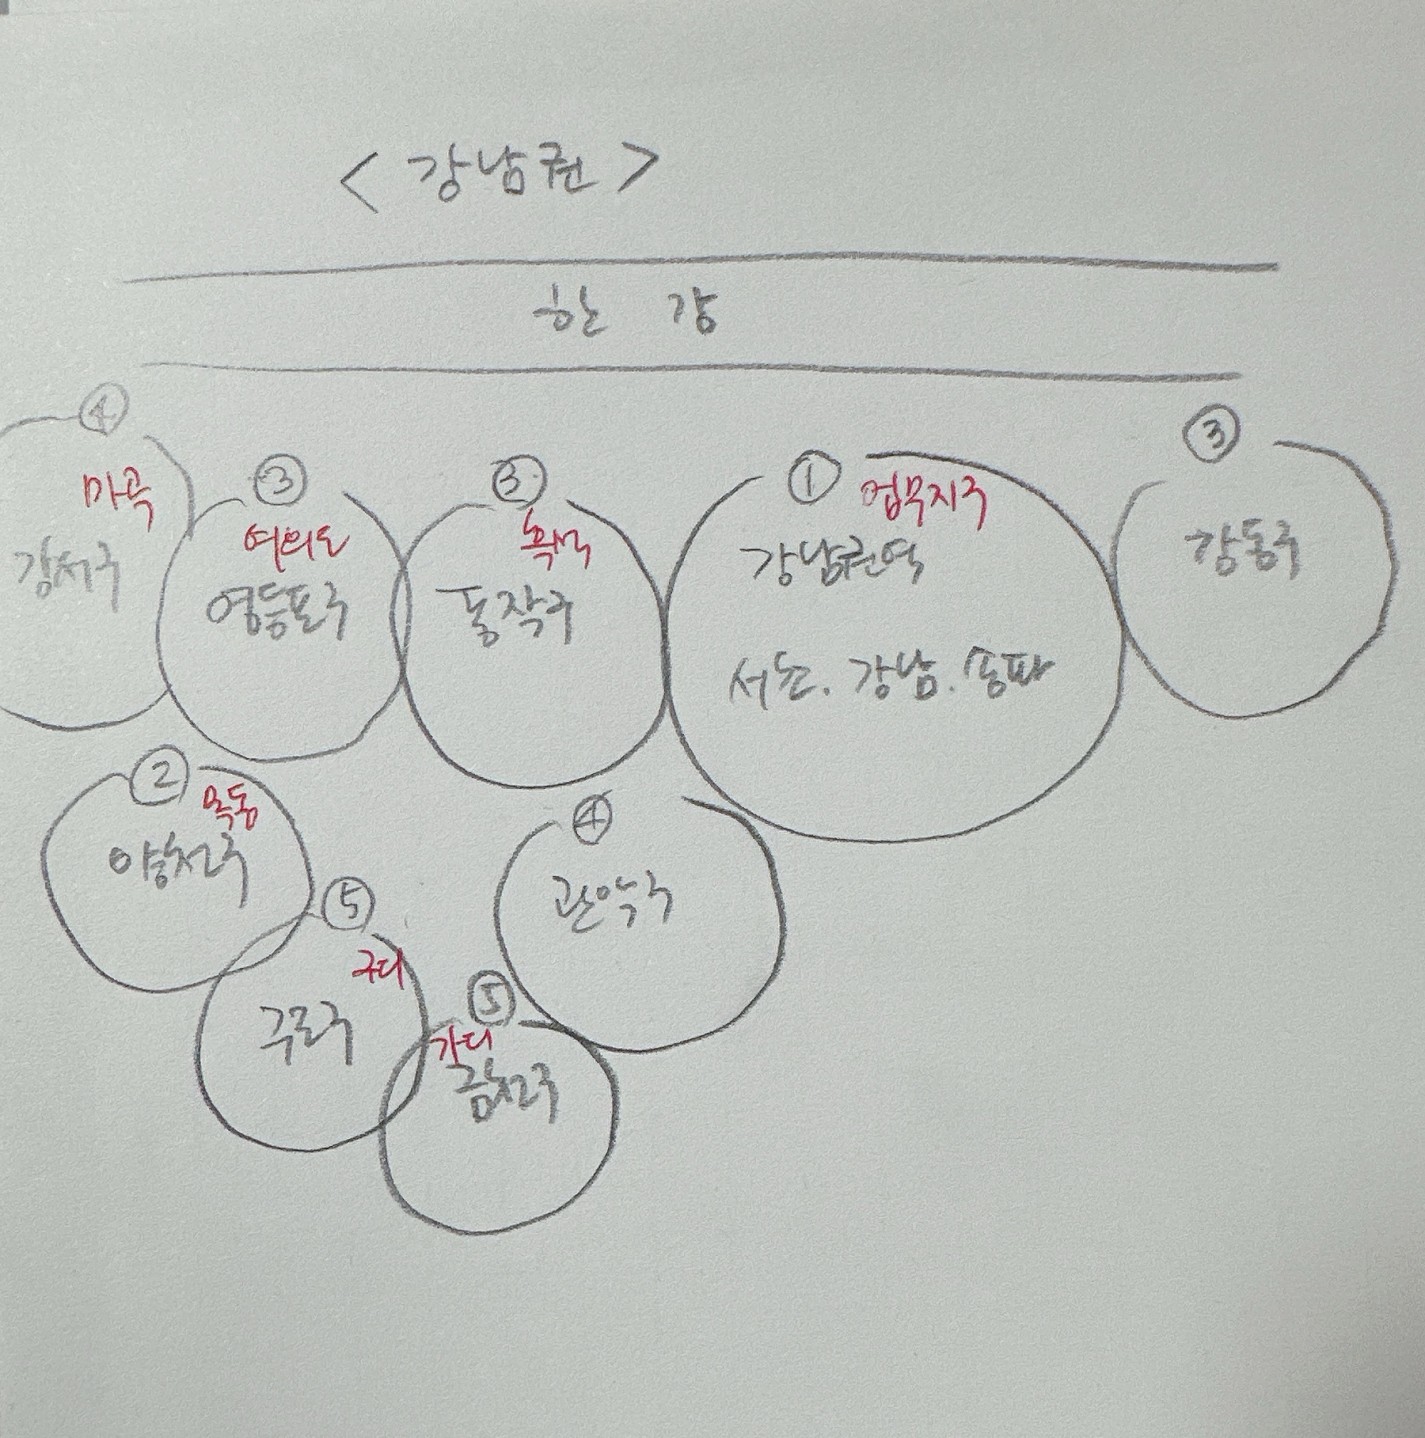 < 강남권 >
한 강
④
마곡
강서구
③
여의도
영등포구
③
흑석
동작구
① 업무지구
강남권역
서초. 강남. 송파
③
강동구
②
목동
양천구
④
관악구
⑤
구디
구로구
⑤
가디
금천구